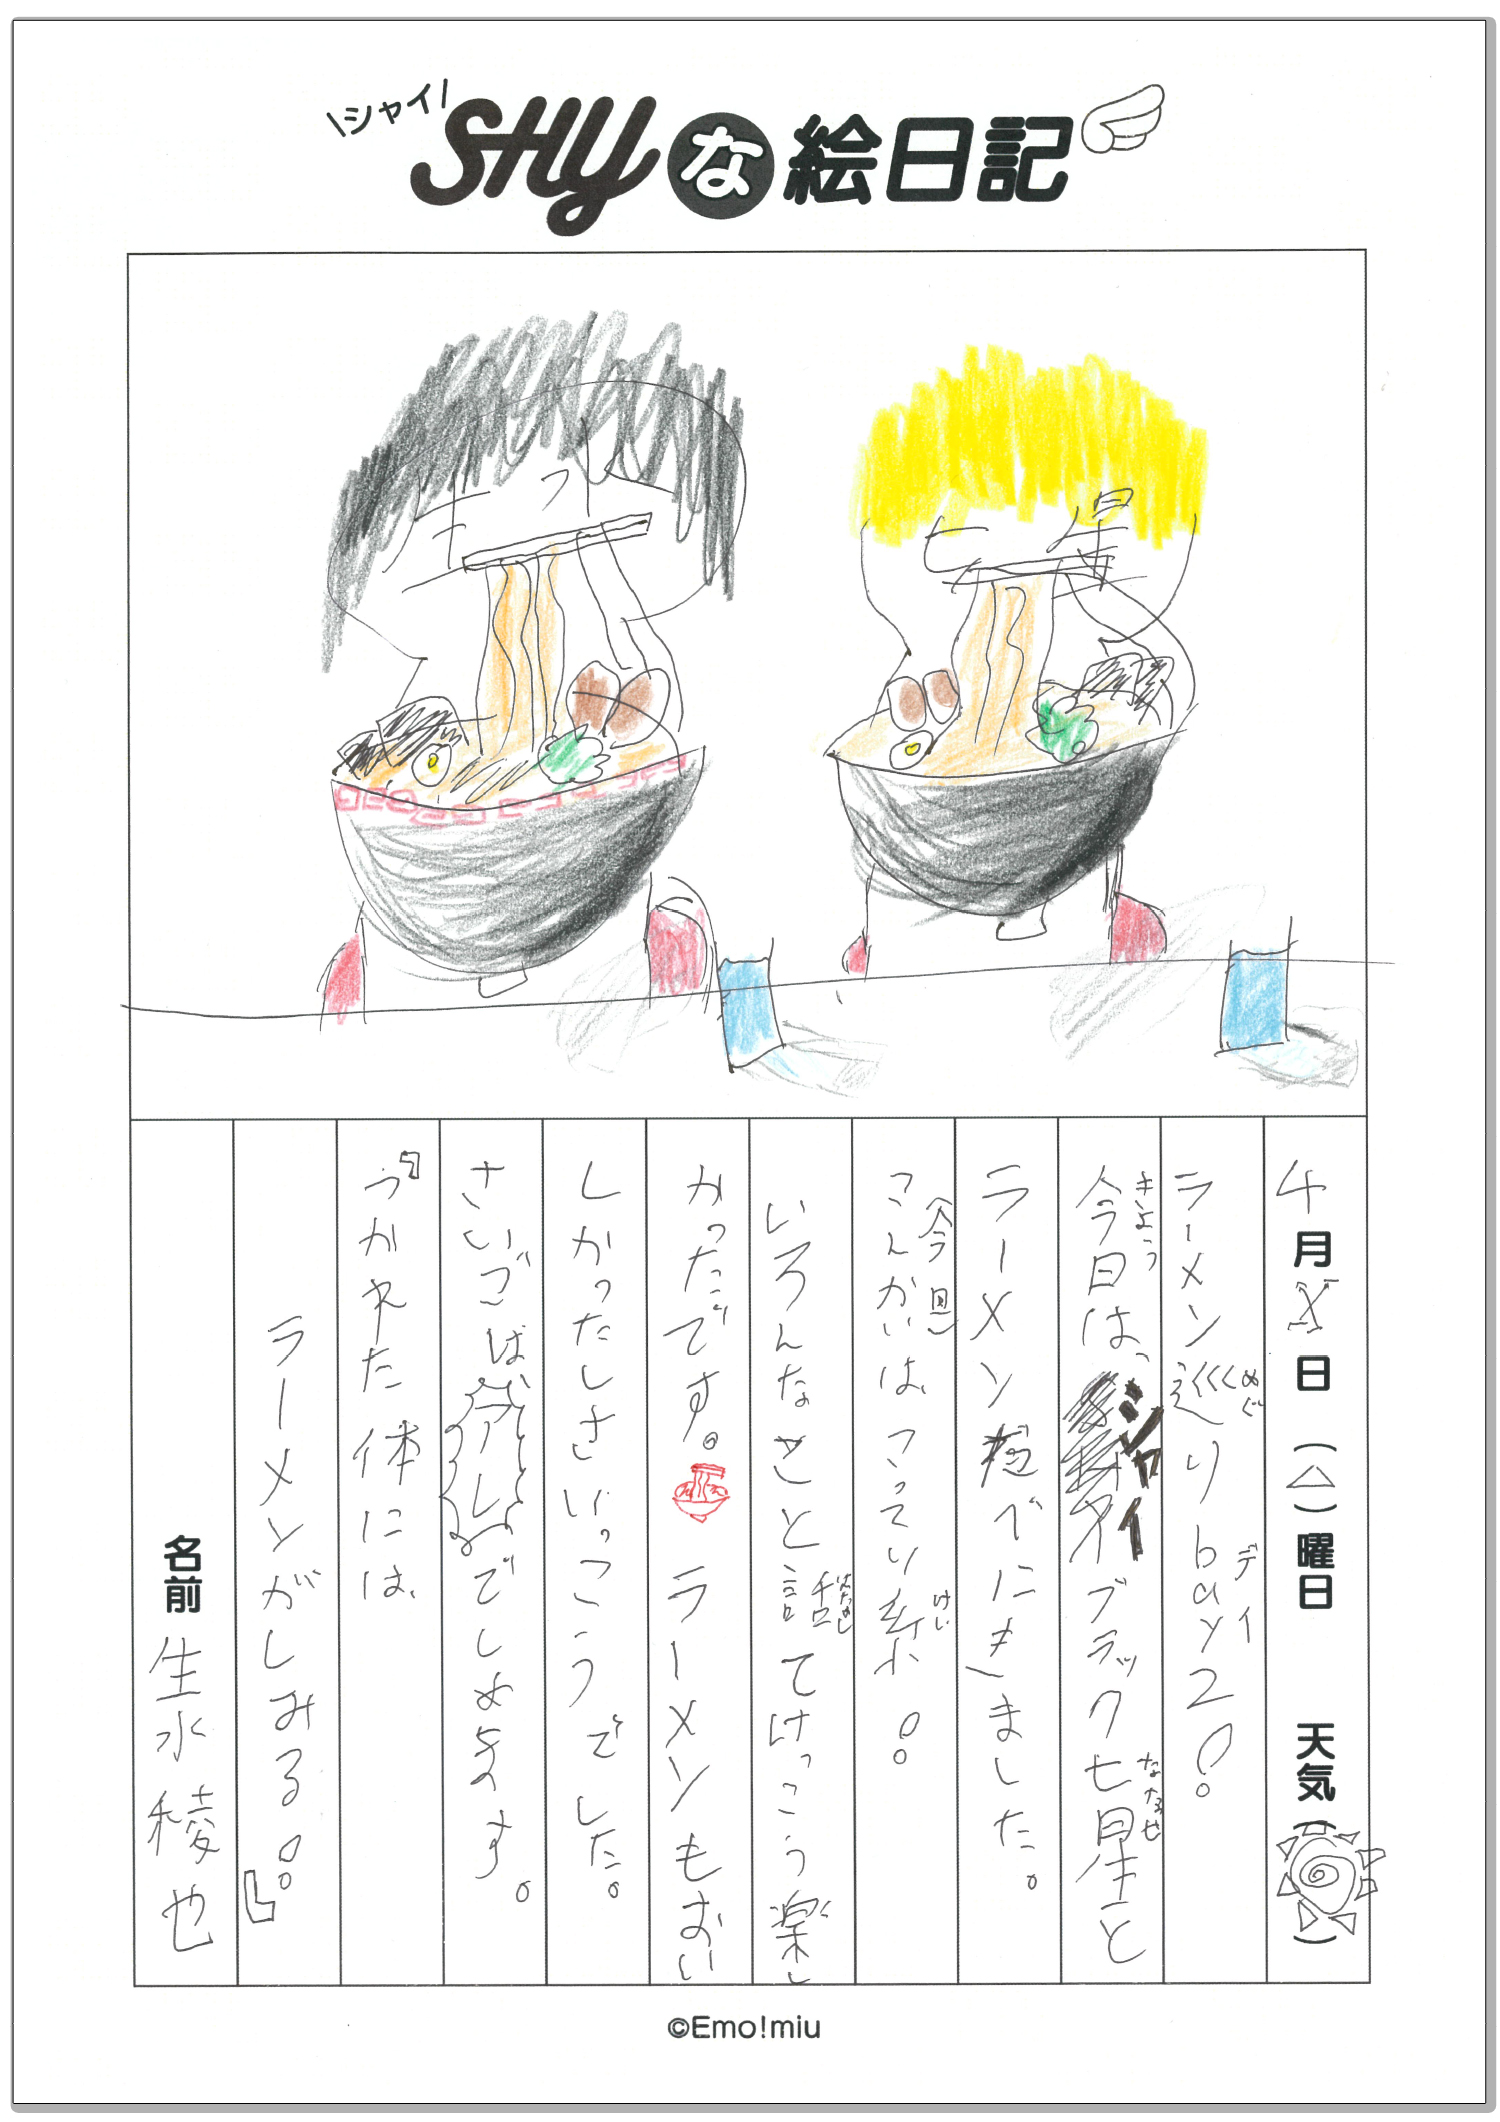 \シャイ/
SHYな絵日記
生水
七星
4月X日(△)曜日 天気( )
ラーメン巡り bay2!
めぐ
デイ
今日は、シャイブラック七星と
きょう
ななせ
ラーメン食べにきました。
こんかいは、こってり系!
(今回)
けい
いろんなこと話てけっこう楽し
かったです。ラーメンもおい
しかったしさいっこうでした。
さいごは、アレでしめます。
『つかれた体には、
ラーメンがしみる!』
名前 生水稜也
©Emo!miu